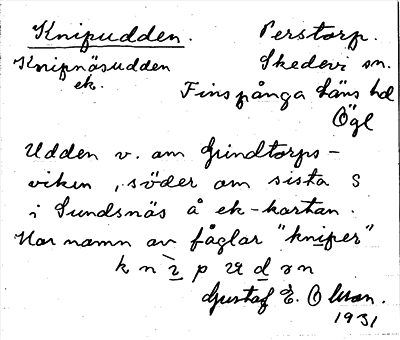 Knipudden. Perstorp.
Knipnäsudden Skedevi sn.
ek. Finspånga läns hd
Ögl
Udden v. om Grindtorps-
viken, söder om sista S
i Sundsnäs å ek-kartan.
Har namn av fåglar "kniper"
Gustaf E. Olsson.
1931